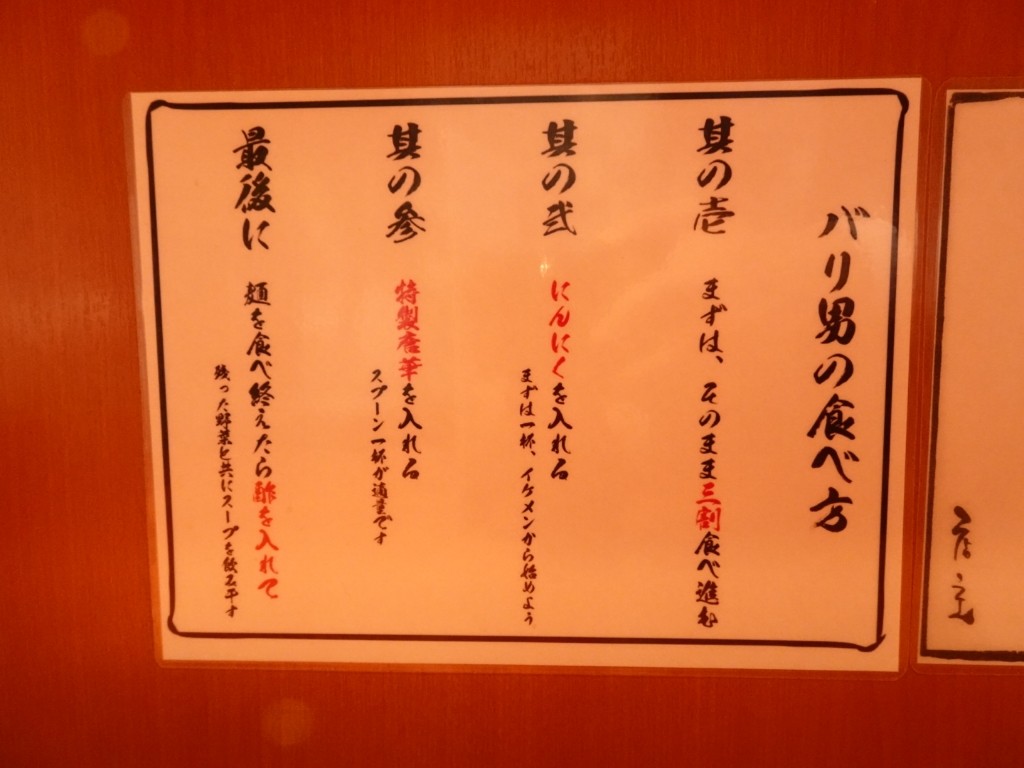 バリ男の食べ方
其の壱
まずは、そのまま三割食べ進む
其の弐
にんにくを入れる
まずは一杯、イケメンから始めよう
其の参
特製唐華を入れる
スプーン一杯が適量です
最後に
麺を食べ終えたら酢を入れて
残った野菜と共にスープを飲み干す
店主